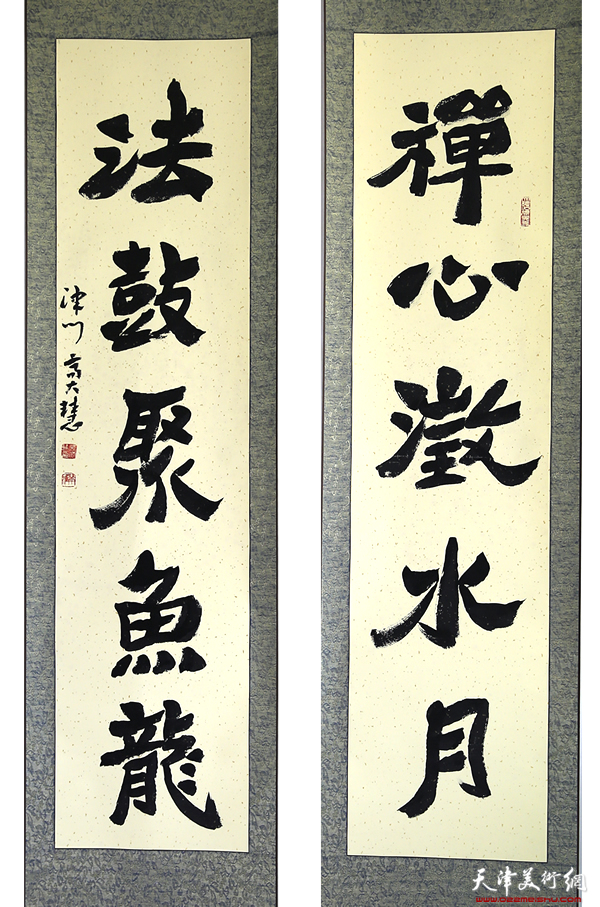 禪心澂水月
法鼓聚魚龍
津門 高大慧
天津美術網